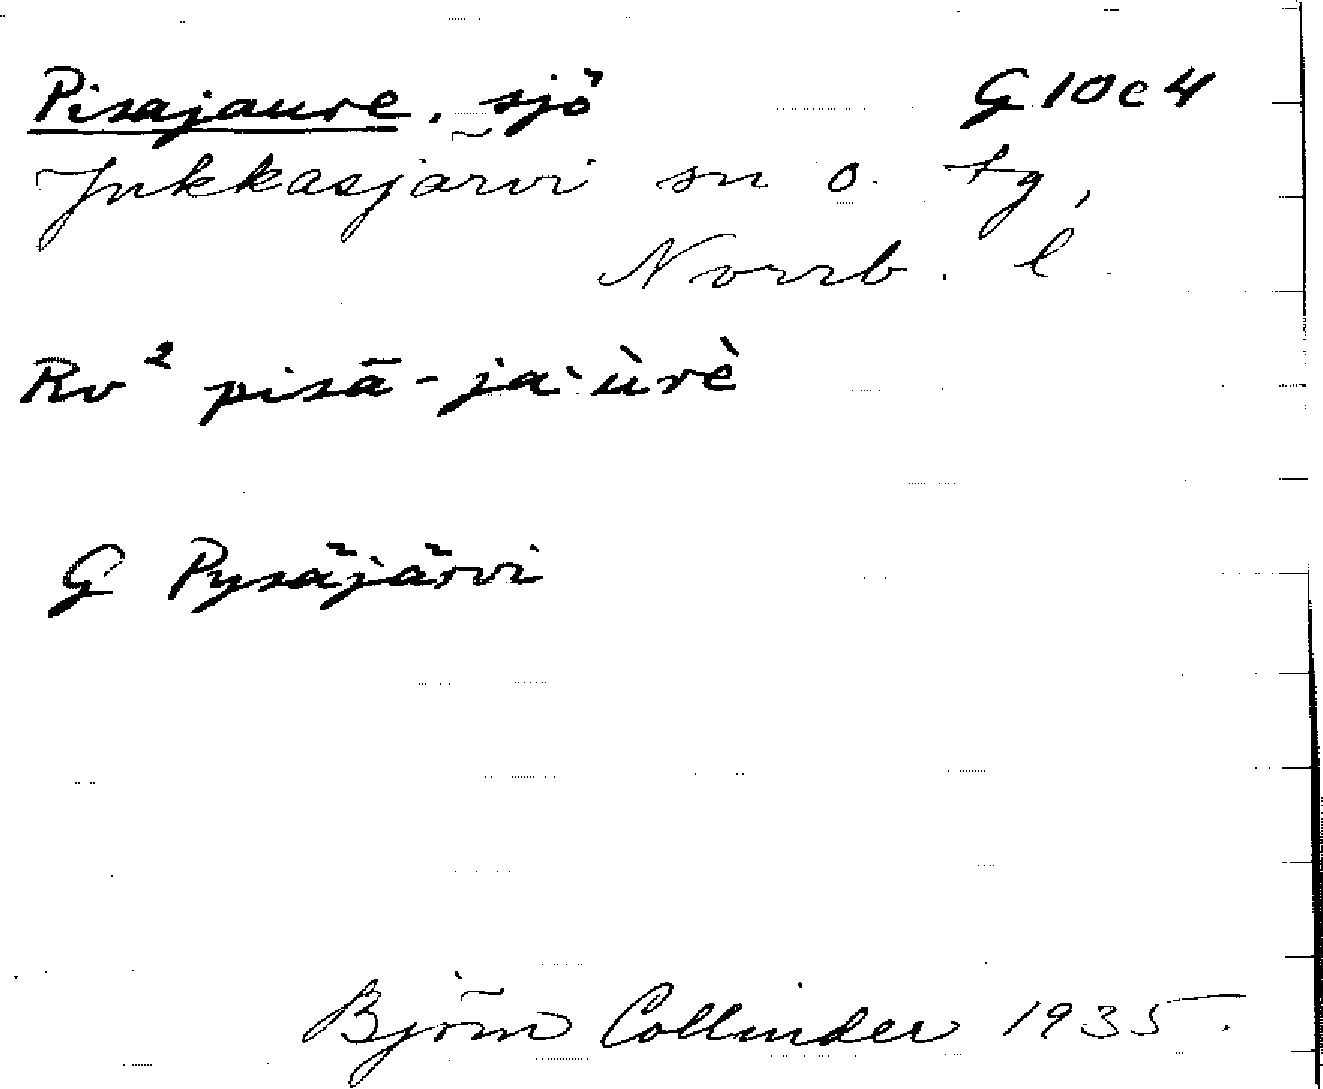 Pisajaure, sjö G 10 c 4
Jukkasjärvi sn o. tg,
Norrb. l.
Rv² pisā-ja·ùrè
G Pysäjärvi
Björn Collinder 1935.